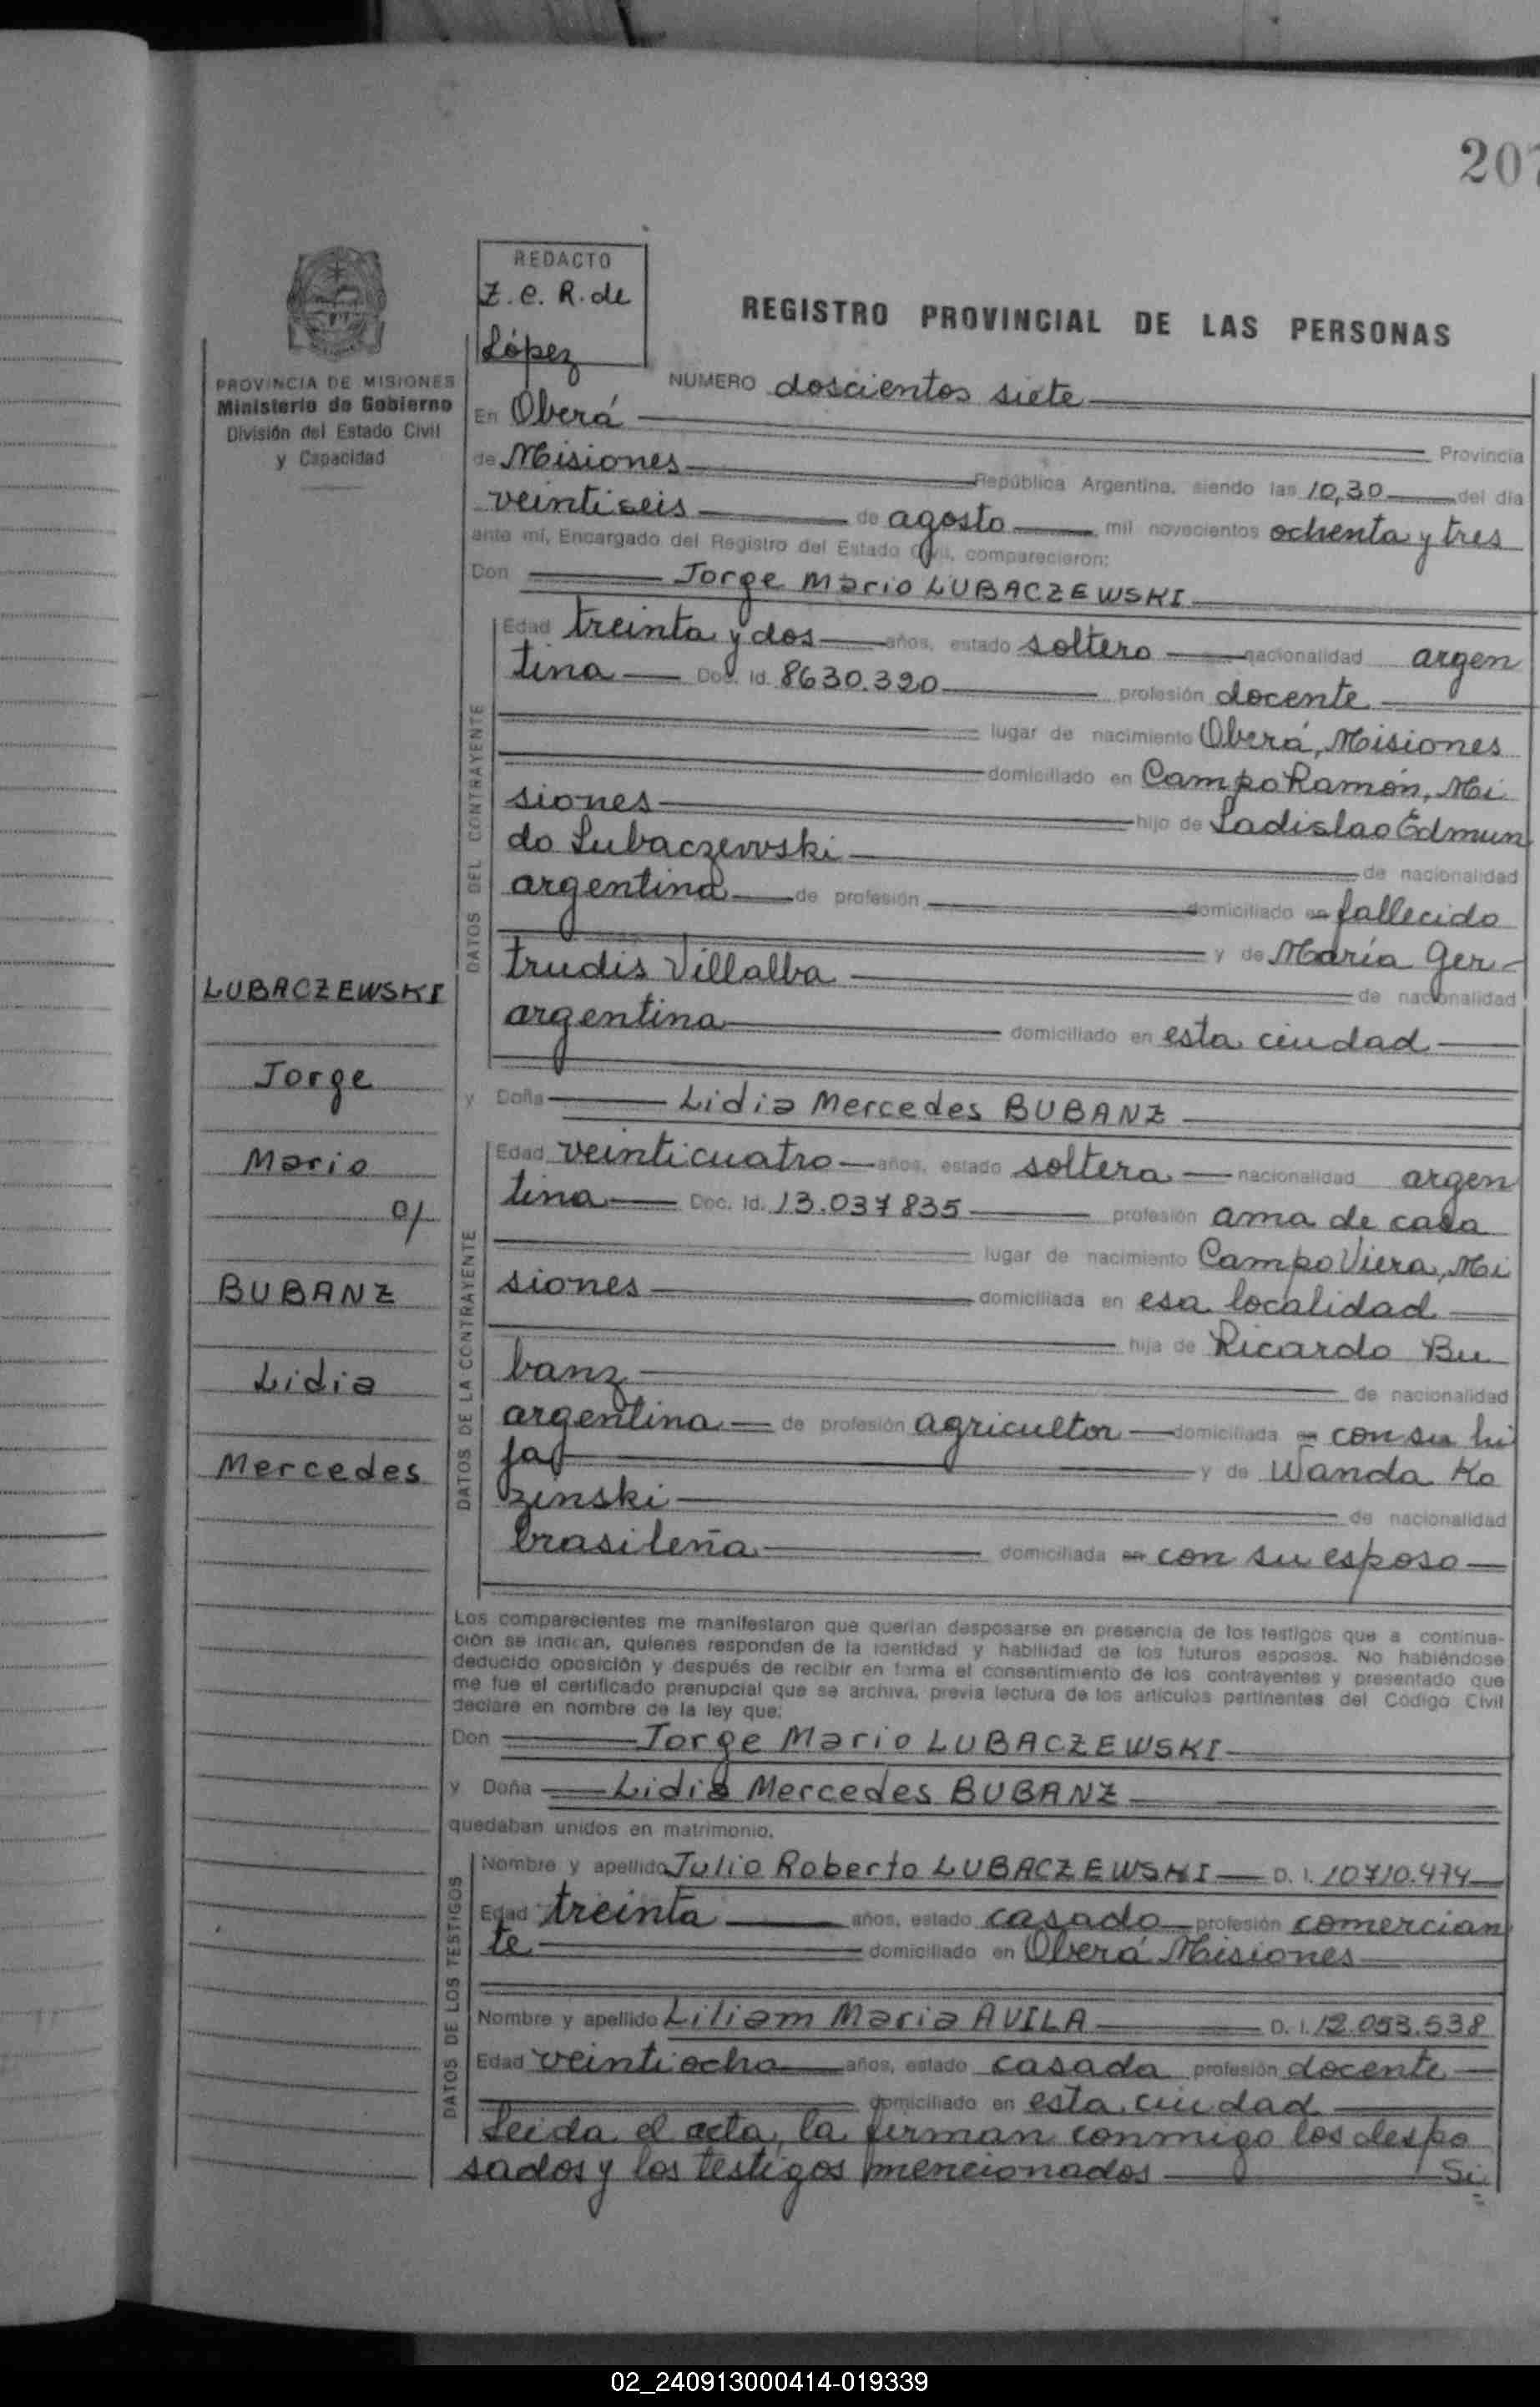 207
REDACTO
Z. C. R. de
López
REGISTRO PROVINCIAL DE LAS PERSONAS
PROVINCIA DE MISIONES
Ministerio de Gobierno
División del Estado Civil
y Capacidad
NUMERO doscientos siete
En Oberá
Provincia
de Misiones República Argentina, siendo las 10,30 del día
veintiseis de agosto mil novecientos ochenta y tres
ante mí, Encargado del Registro del Estado Civil, comparecieron:
Don Jorge Mario LUBACZEWSKI
DATOS DEL CONTRAYENTE
Edad treinta y dos años, estado soltero nacionalidad argen
tina Doc. Id. 8630.320 profesión docente
lugar de nacimiento Oberá, Misiones
domiciliado en Campo Ramón, Mi
siones hijo de Ladislao Edmun
do Lubaczewski de nacionalidad
argentina de profesión domiciliado en fallecido
y de María Ger-
trudis Villalba de nacionalidad
argentina domiciliado en esta ciudad
y Doña Lidia Mercedes BUBANZ
DATOS DE LA CONTRAYENTE
Edad veinticuatro años, estado soltera nacionalidad argen
tina Doc. Id. 13.037835 profesión ama de casa
lugar de nacimiento Campo Viera, Mi
siones domiciliada en esa localidad
hija de Ricardo Bu
banz de nacionalidad
argentina de profesión agricultor domiciliada en con su hi
ja y de Wanda Ko
zinski de nacionalidad
brasileña domiciliada en con su esposo
LUBACZEWSKI
Jorge
Mario
c/
BUBANZ
Lidia
Mercedes
Los comparecientes me manifestaron que querían desposarse en presencia de los testigos que a continua-
ción se indican, quienes responden de la identidad y habilidad de los futuros esposos. No habiéndose
deducido oposición y después de recibir en forma el consentimiento de los contrayentes y presentado que
me fue el certificado prenupcial que se archiva, previa lectura de los artículos pertinentes del Código Civil
declare en nombre de la ley que:
Don Jorge Mario LUBACZEWSKI
y Doña Lidia Mercedes BUBANZ
quedaban unidos en matrimonio.
DATOS DE LOS TESTIGOS
Nombre y apellido Julio Roberto LUBACZEWSKI D. I. 10710.474
Edad treinta años, estado casado profesión comercian
te domiciliado en Oberá Misiones
Nombre y apellido Liliam Maria AVILA D. I. 12.053.538
Edad veintiocho años, estado casada profesión docente
domiciliado en esta ciudad
Leida el acta, la firman conmigo los despo
sados y los testigos mencionados Si
02_240913000414-019339